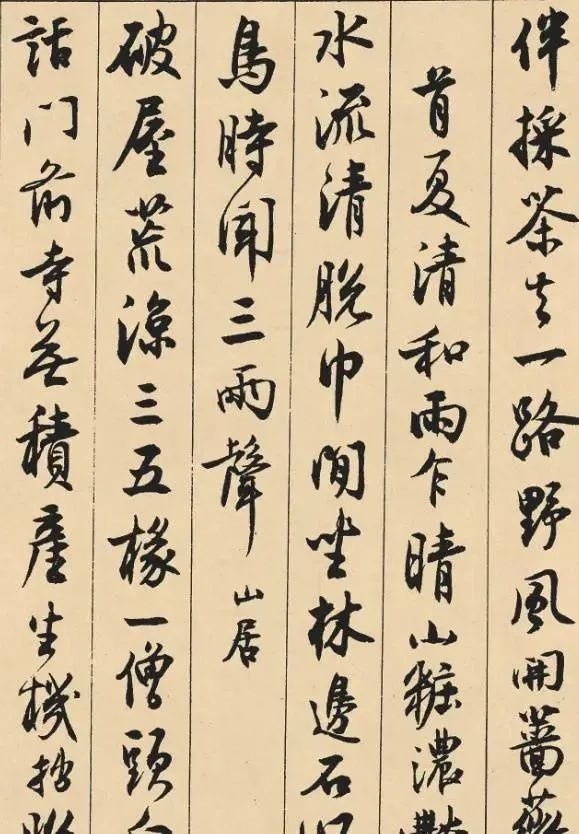 伴採茶去一路野風開薔薇
首夏清和雨乍晴山粧濃
水流清脫巾閒坐林邊石
鳥時聞三兩聲 山居
破屋荒涼三五椽一僧頭
話门前寺無積產生機拙